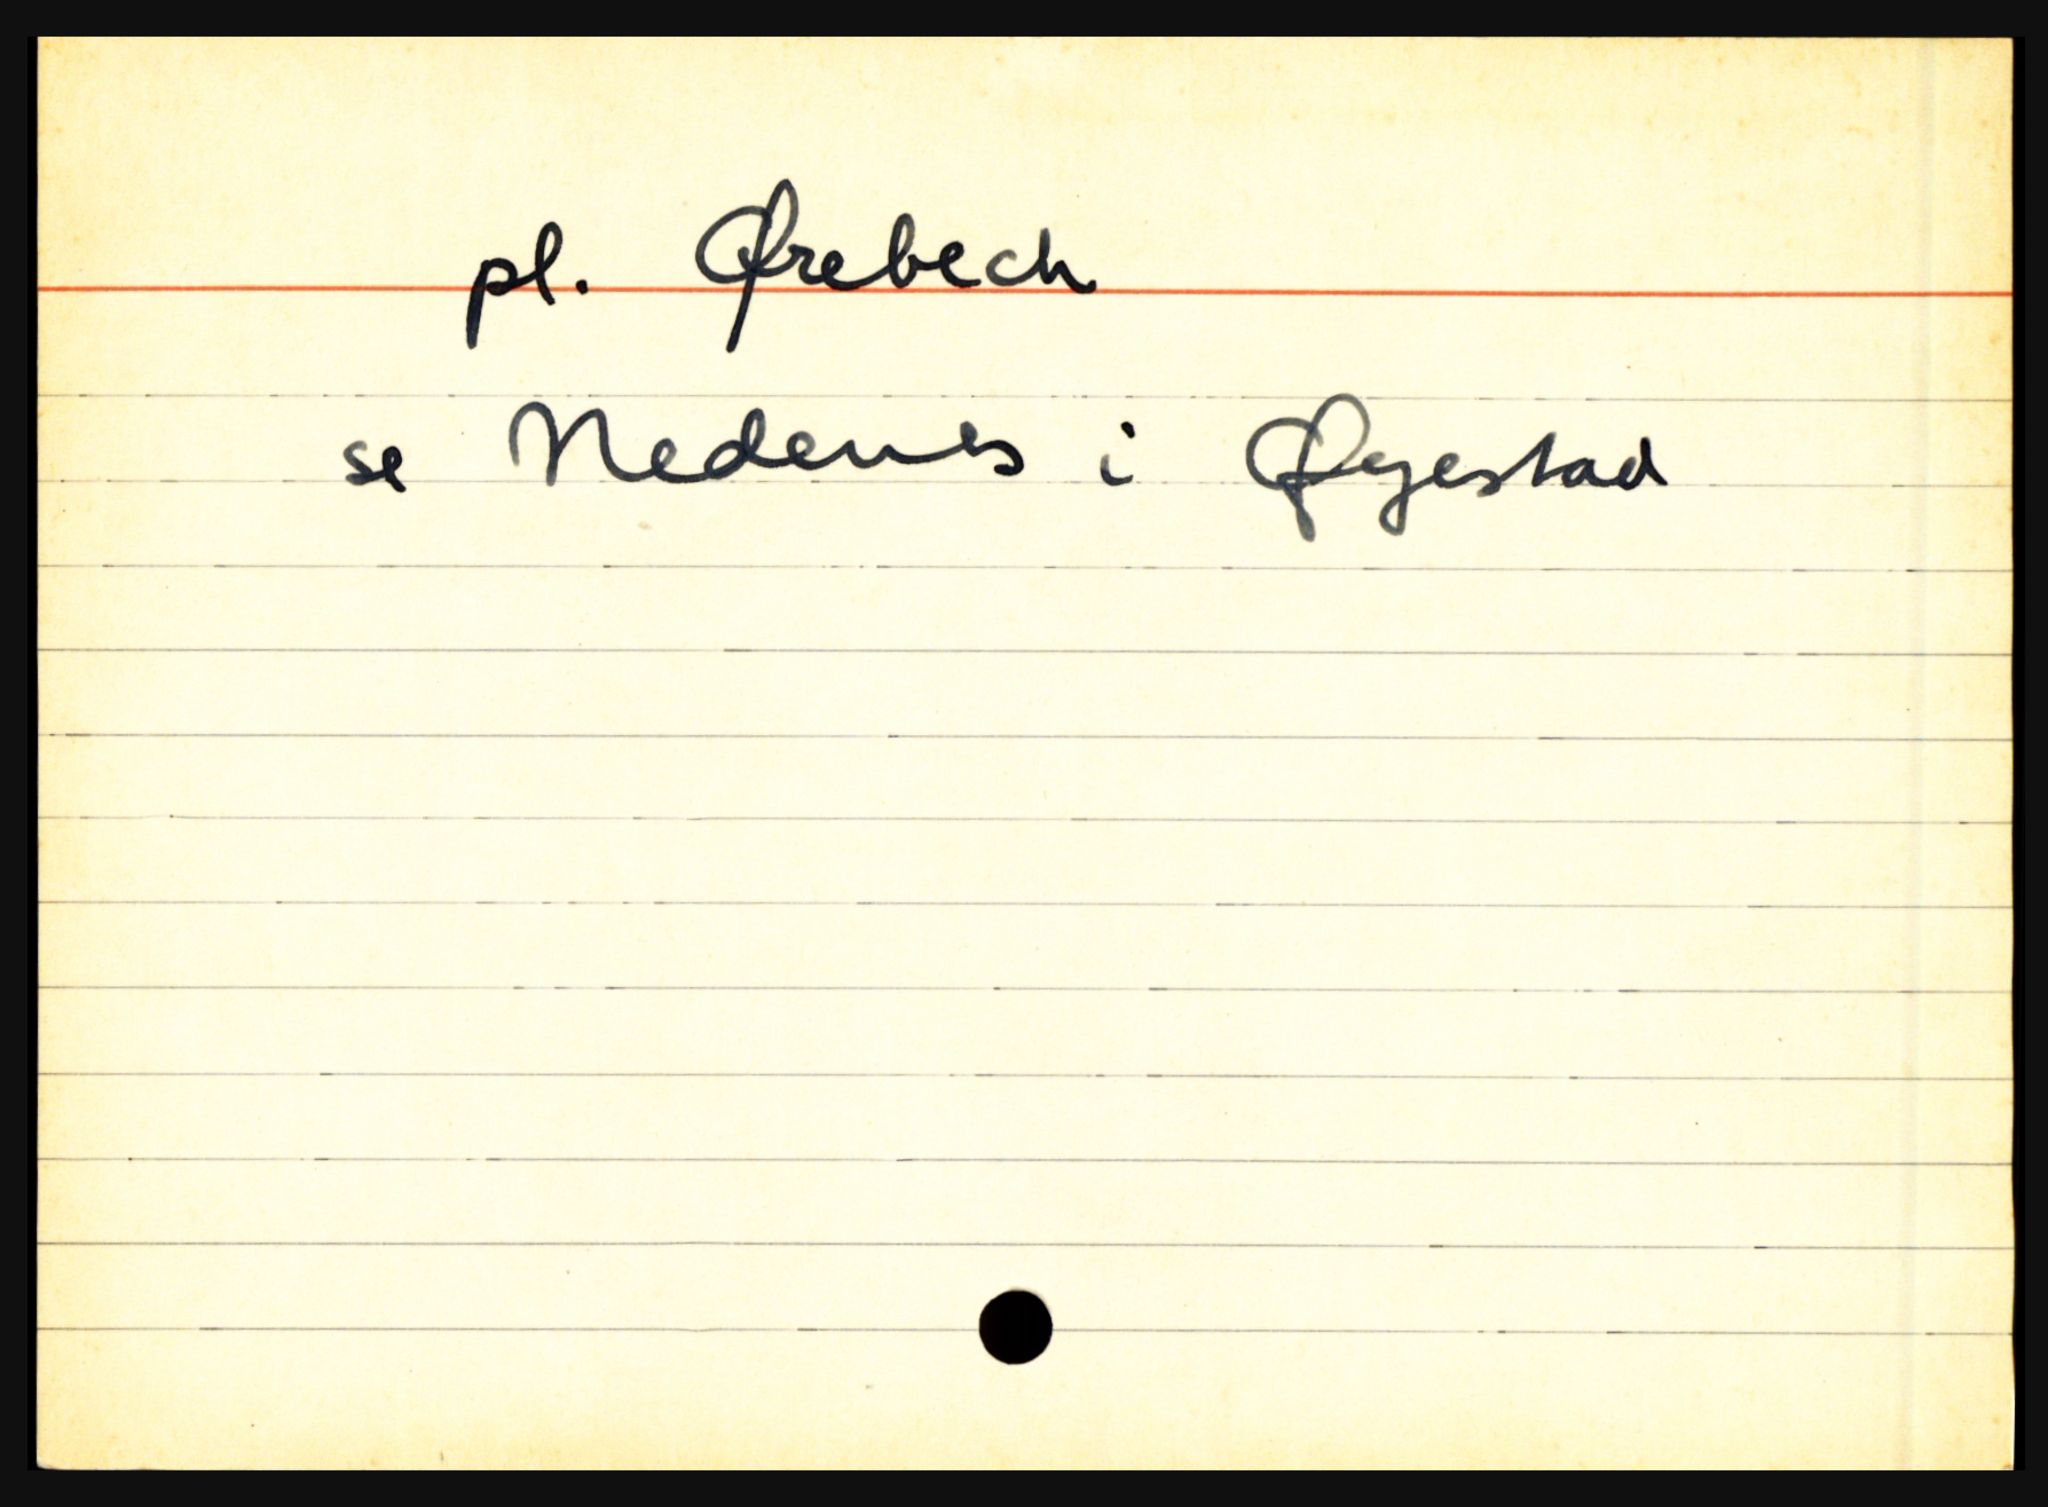 pl. Ørebech
se Nedenes i Øyestad